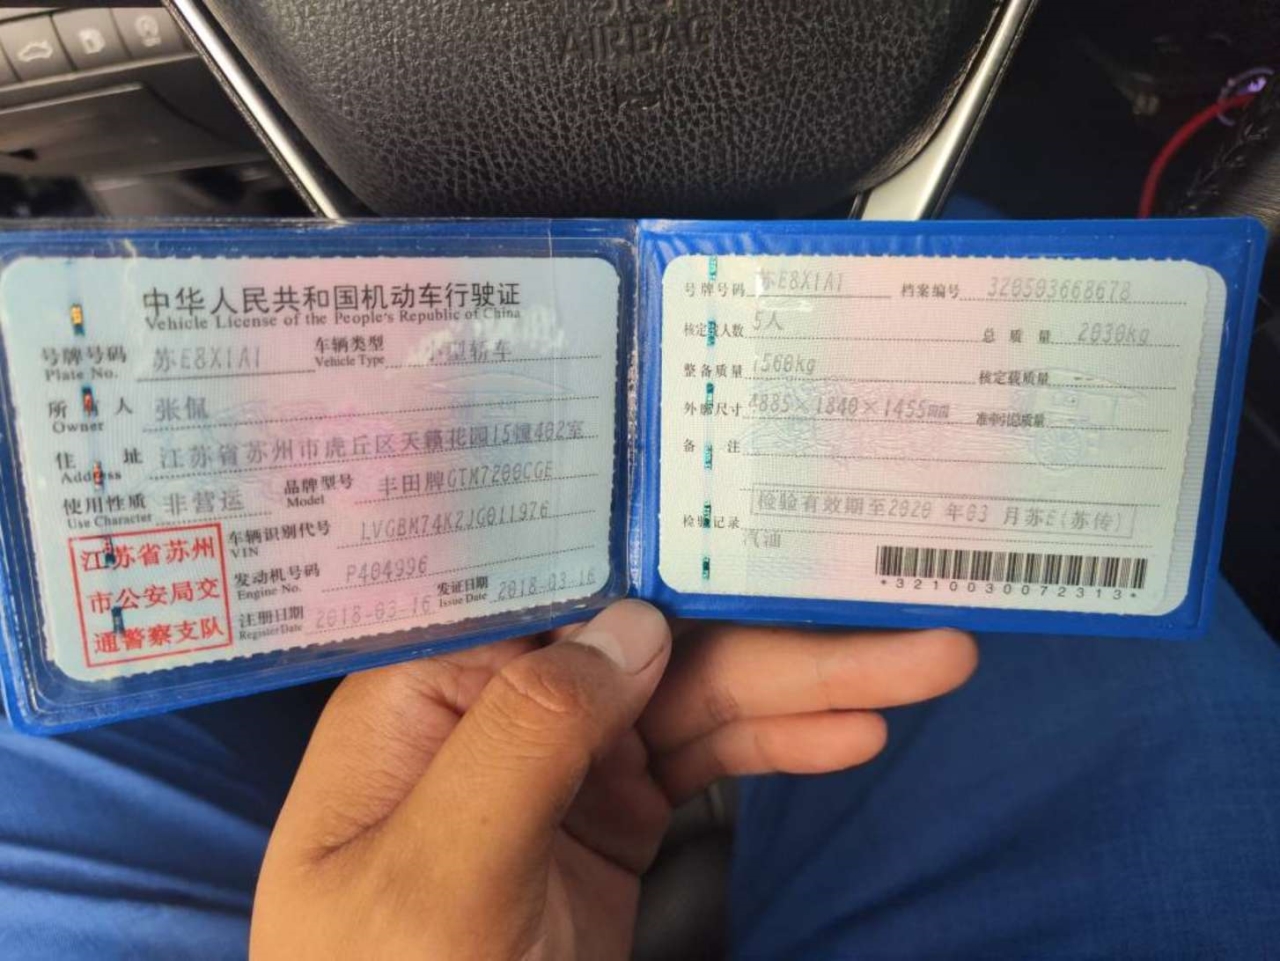 AIRBAG
中华人民共和国机动车行驶证
Vehicle License of the People's Republic of China
号牌号码 苏E8X1A1 车辆类型 小型轿车
Plate No. Vehicle Type
所有人 张侃
Owner
住址 江苏省苏州市虎丘区天籁花园15幢402室
Address
使用性质 非营运 品牌型号 丰田牌GTM7200CGE
Use Character Model
江苏省苏州
市公安局交
通警察支队
车辆识别代号 LVGBM74K2JG011976
VIN
发动机号码 P404996
Engine No.
注册日期 2018-03-16 发证日期 2018-03-16
Register Date Issue Date
号牌号码 苏E8X1A1 档案编号 320503668678
核定载人数 5人 总质量 2030kg
整备质量 1560kg 核定载质量 --
外廓尺寸 4885×1840×1455mm 准牵引总质量
备注
检验有效期至2020 年03 月苏E(苏传)
检验记录
汽油
*3210030072313*